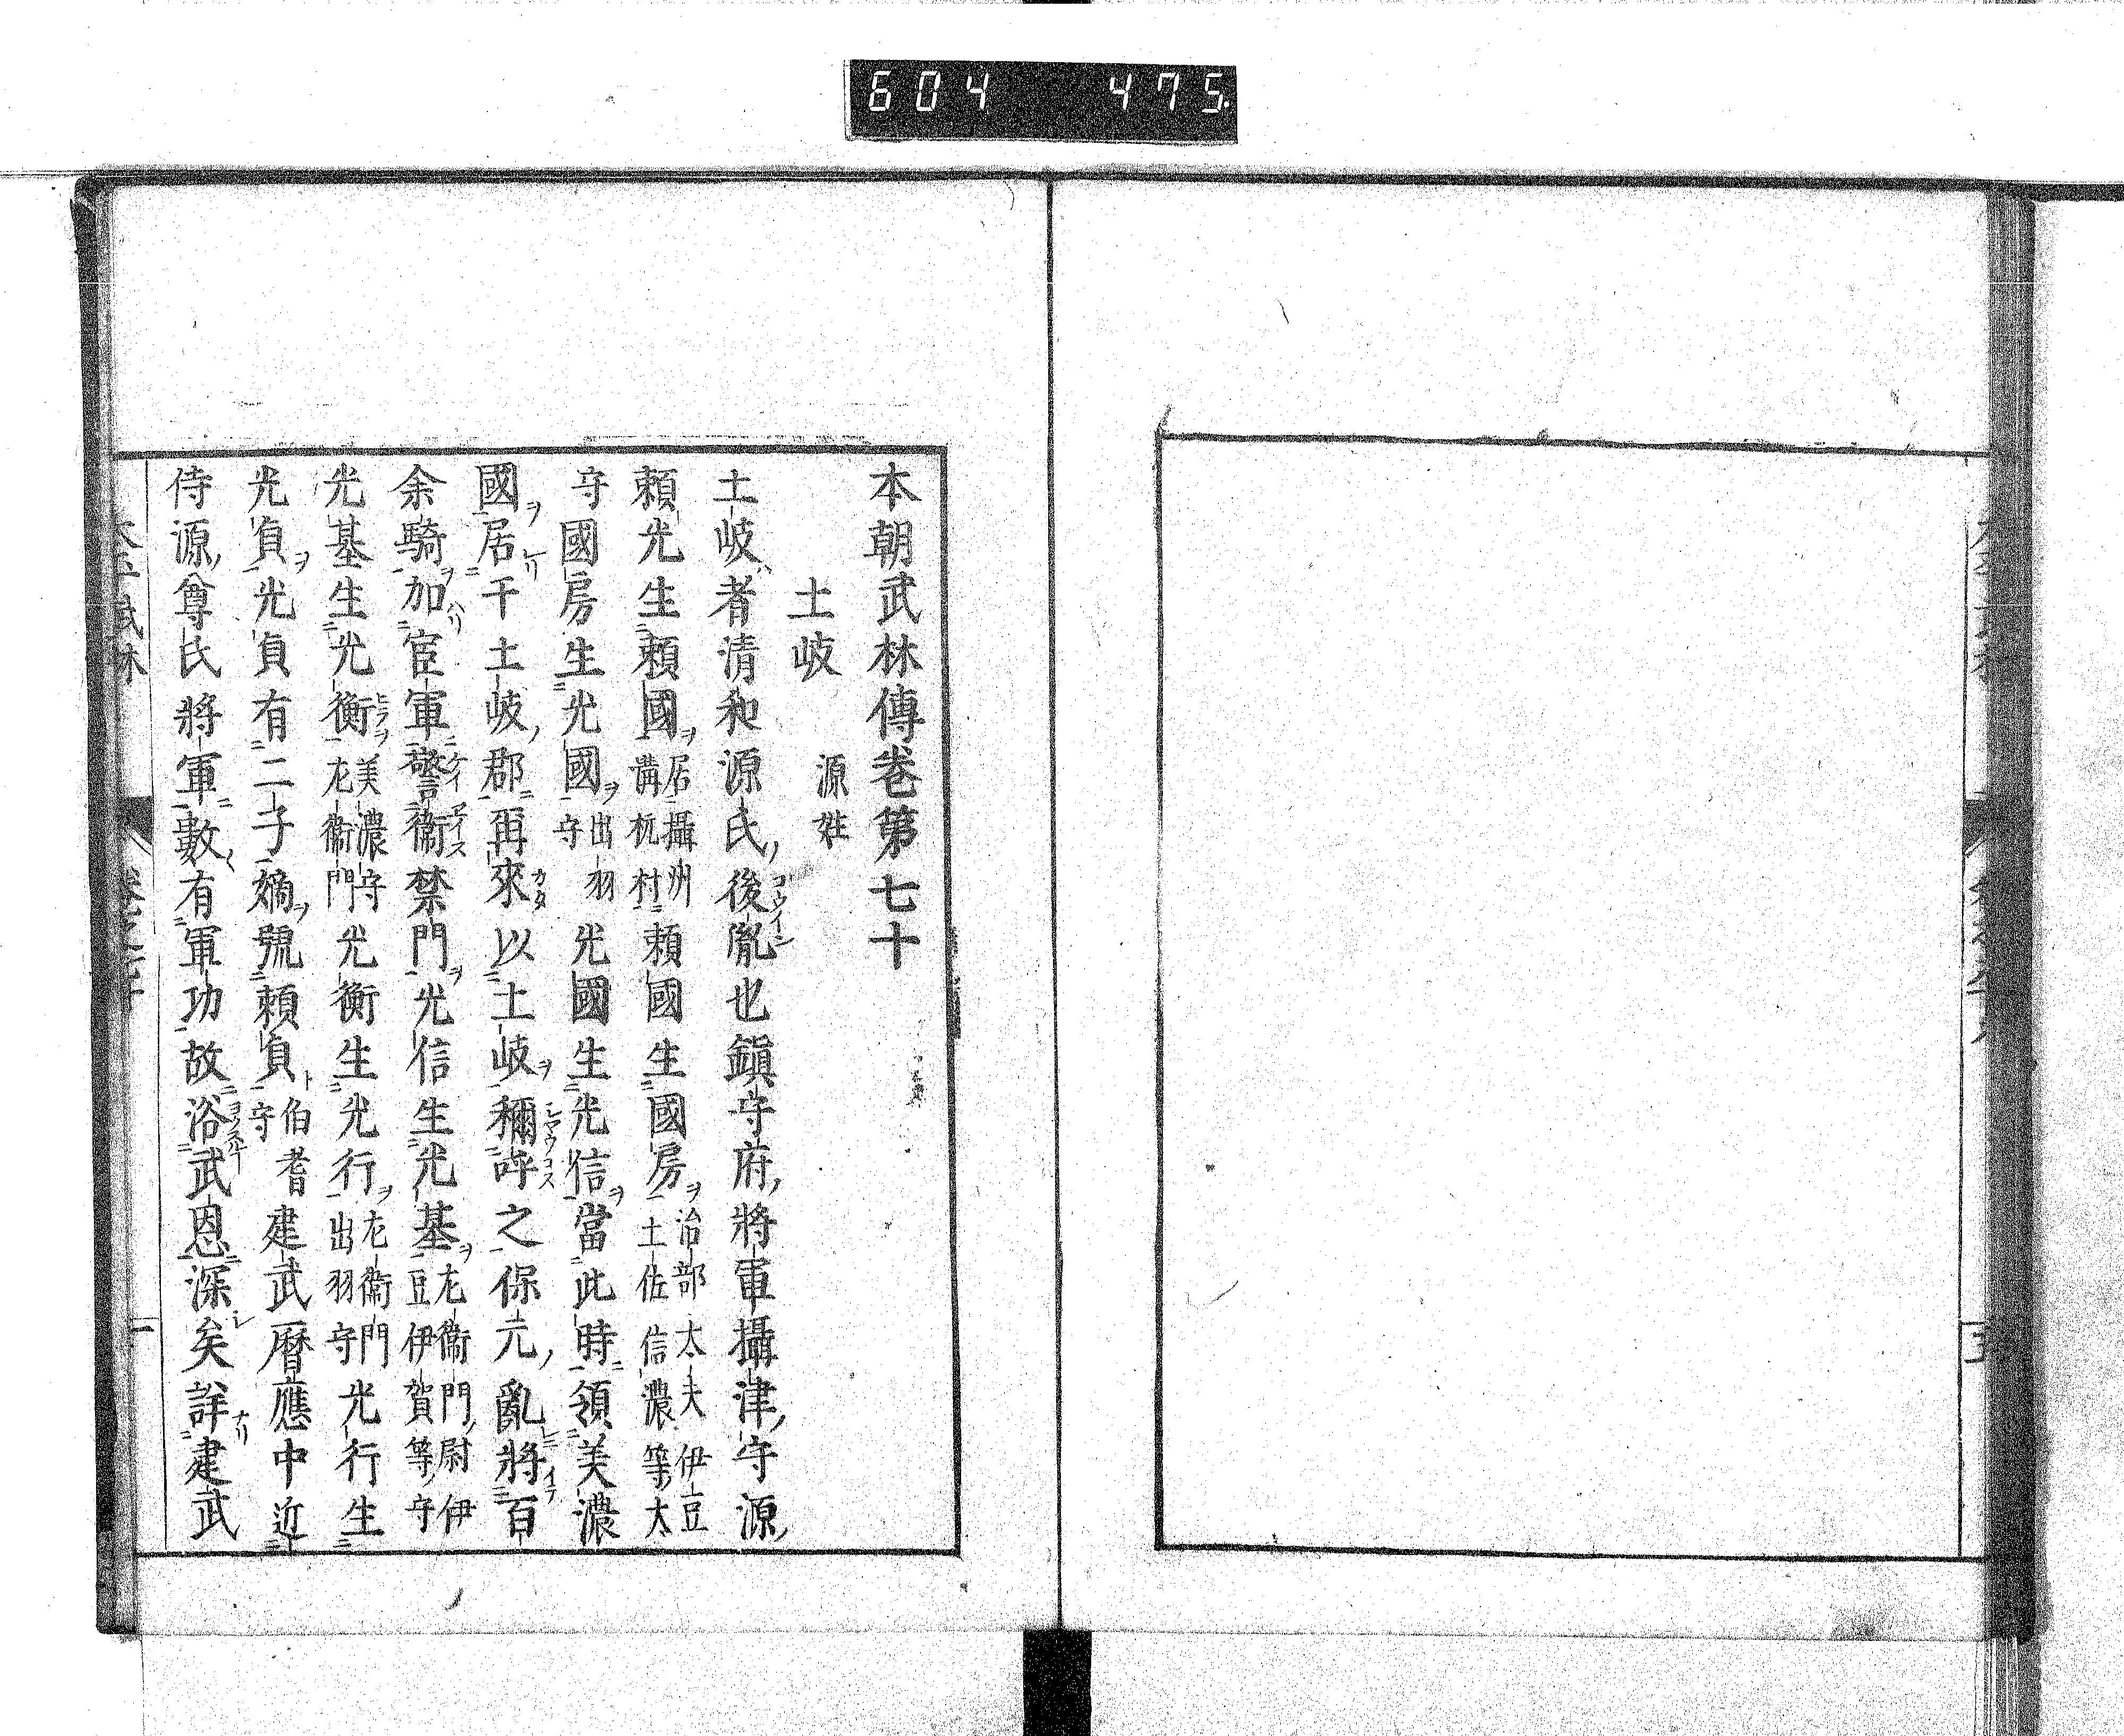 604 475
本朝武林傳卷第七十
土岐 源姓
土岐者清和源氏後胤也鎮守府將軍攝津守源
賴光生賴國居攝州溝杭村賴國生國房治部太夫伊豆土佐信濃等太
守國房生光國出羽守光國生光信當此時領美濃
國居于土岐郡再來以土岐稱呼之保元亂將百
余騎加宦軍警衞禁門光信生光基左衞門尉伊豆伊賀等守
光基生光衡美濃守左衞門光衡生光行左衞門出羽守光行生
光貞光貞有二子嫡號賴貞伯耆守建武曆應中近
侍源尊氏將軍數有軍功故浴武恩深矣詳建武